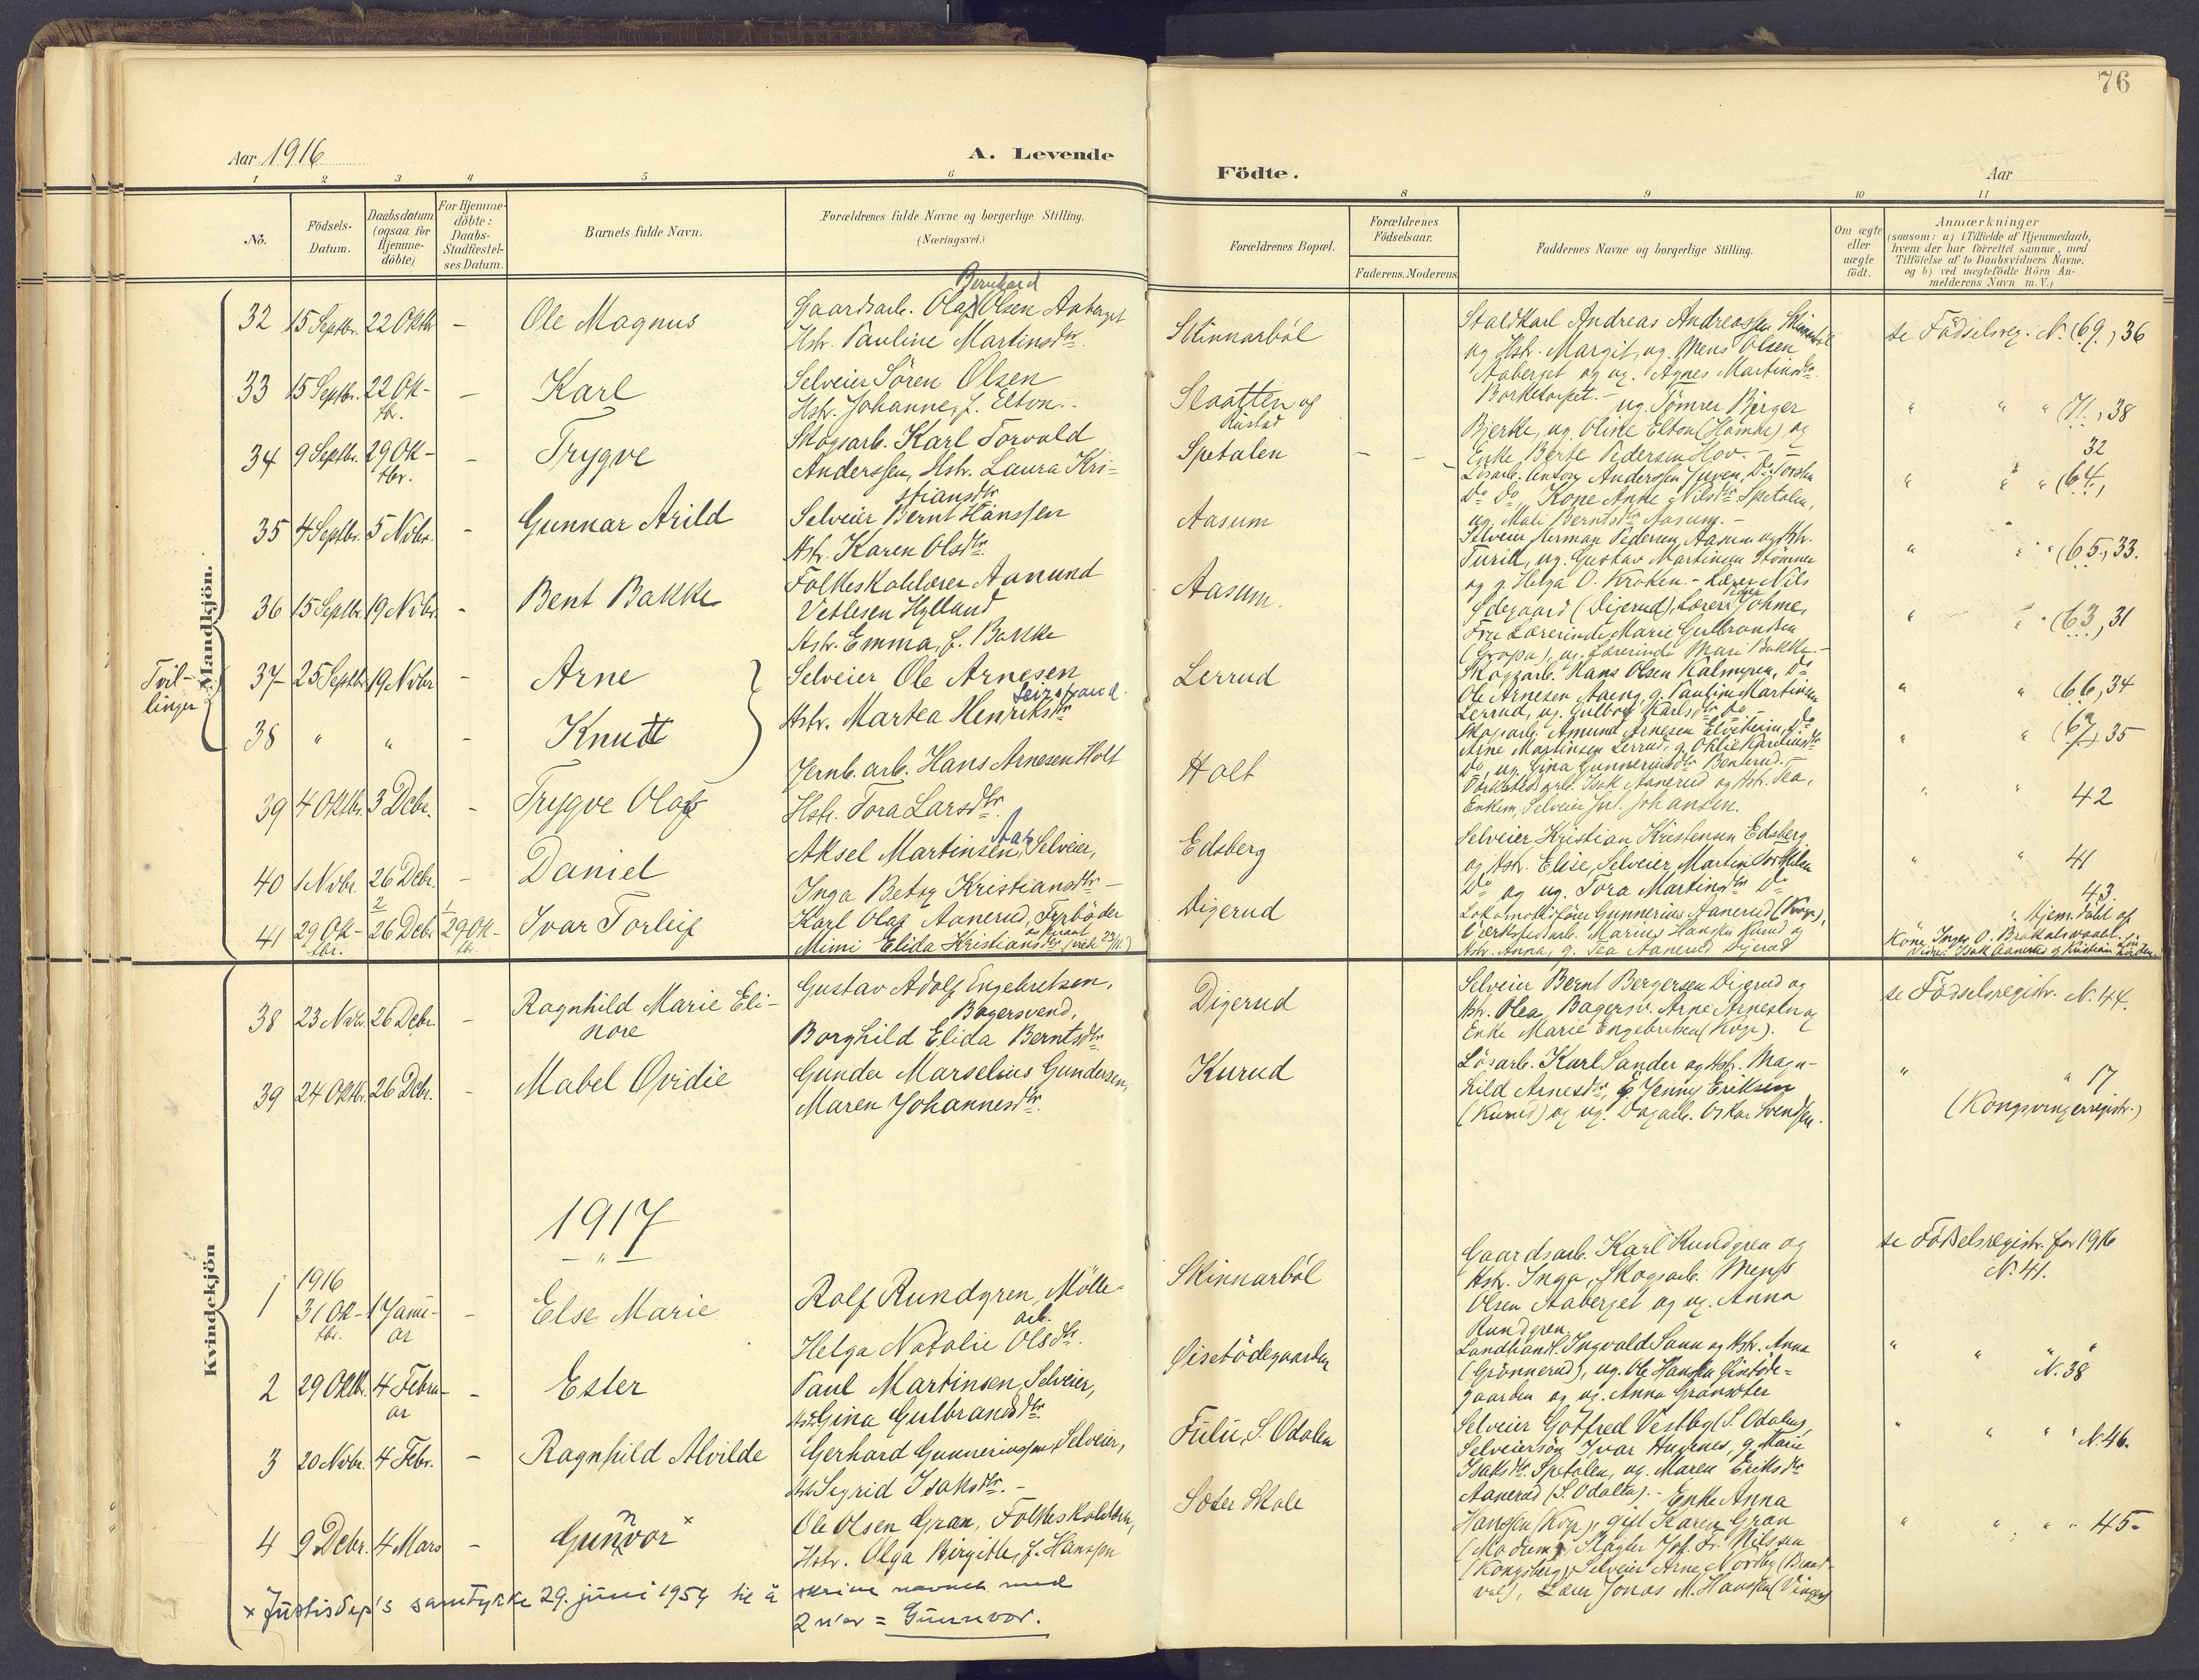 76
Aar 1916
A. Levende
Födte.
Aar
1 2 3 4 5 6 8 9 10 11
No.
Födsels-Datum.
Daabsdatum (ogsaa for Hjemme-döbte)
For Hjemme-döbte: Daabs-Stadfæstel-ses Datum.
Barnets fulde Navn.
Forældrenes fulde Navne og borgerlige Stilling.
(Næringsvei.)
Forældrenes Bopæl.
Forældrenes Födselsaar.
Faderens. Moderens.
Faddernes Navne og borgerlige Stilling.
Om ægte eller uægte födt.
Anmærkninger
(saasom: a) i Tilfælde af Hjemmedaab,
hvem der har forrettet samme, med
Tilföielse af to Daabsvidners Navne.
og b) ved uægtefödte Börn An-
melderens Navn m. V.)
Mandkjön.
32 15 Septbr. 22 Oktbr - Ole Magnus
Bernhard
Gaardsarb. Olaf Olsen Aaberget
Hstr. Pauline Martinsdtr.
Skinnarböl
Staldkarl Andreas Andreassen Skinnarböl
og Hstr. Margit, ug. Mens Olsen
Aaberget og ug. Agnes Martinsdtr.
Borketorpet.-
se Födselsreg. N. (69), 36
33 15 Septbr. 22 Ok-tbr. - Karl
Selveier Sören Olsen
Hstr. Johanne, f. Elton.
Slaatten og Rustad
ug. Tömrer Birger
Bjerke, ug. Oline Elton (Hamar) og
Enke Berte Pedersen Hov. -
" " " (71), 38
34 9 Septbr. 29 Ok-tbr. - Trygve
Skogsarb. Karl Torvald
Anderssen, Hstr. Laura Kri-
stiansdtr
Spetalen
Lösarb. Anton Anderssen Juven, Do Torsten
Do Do, Kone Anne Nilsdtr Spetalen,
ug. Mali Berntsdtr Aasum. -
32
" " " (64),
35 4 Septbr. 5 Nvbr. - Gunnar Arild
Selveier Bernt Hanssen
Hstr. Karen Olsdtr.
Aasum
Selveier Herman Pedersen Aasum og Hstr.
Turid, ug. Gustav Martinsen Strömmen
og g. Helga O. Kroken. -
" " " (65), 33.
36 15 Septbr. 19 Nvbr. - Bent Bakke
Folkeskolelærer Aanund
Vetlesen Hylland
Hstr. Emma, f. Bakke
Aasum.
Lærer Nils
Ödegaard (Digerud), Lærer Johme,
Fru Lærerinde Marie Gulbrandsen
(Gropa), ug. Lærerinde Mari Bakke. -
" " (63), 31
Tvil-
linger
37 25 Septbr. 19 Nvbr - Arne
Selveier Ole Arnesen
Hstr. Martea Henriksdtr
Lerrud
Skogsarb. Hans Olsen Kalmyren, Do
Ole Arnesen Aaeng, g. Pauline Martinsen
Lerrud, ug. Gulborg Karlsdtr Do -
" " (66), 34
38 " " - Knut
Skogarb. Amund Arnesen Elveheim, Do
Arne Martinsen Lerrud, g. Oklie Karelius
Do, ug. Gina Gunneriusdtr Benterud. -
" " (67), 35
39 4 Oktbr. 3 Debr. - Trygve Olaf
Jernb. arb. Hans Arnesen Holt
Hstr. Tora Larsdtr.
Holt
Isak Aanerud og Hstr. Tea,
Enkem. Selveier Johansen.
" " 42
40 1 Nvbr. 26 Debr. - Daniel
Aksel Martinsen Selveier,
Inga Betsy Kristiansdtr -
Edsberg
Selveier Kristian Kristensen Edsberg
og Hstr. Elise, Selveier Martin Torkelsen
Do og ug. Tora Martinsdtr Do
" " 41
41 29 Ok-tbr. 26 Debr 29 Ok-tbr. Ivar Torleif
Karl Olaf Aanerud, Fyrböder
Mimi Elida Kristiansdtr
Digerud
Lokomotivförer Gunnerius Aanerud (Kvgr),
Værkstedsarb. Marius Hansen Rund og
Hstr. Anna, g. Tea Aanerud Digerud
43.
" Hjem. döbt af
Kone Inger O. Brakalsvaabl.
Vidner: Isak Aanerud og Kristian
Kvindekjön
38 23 Nvbr. 26 Debr. - Ragnhild Marie Eli-
nore
Gustav Adolf Engebretsen,
Bagersvend,
Borghild Elida Berntsdtr.
Digerud
Selveier Bernt Bergersen Digerud og
Hstr. Olea, Bagersv. Arne Arnesen og
Enke Marie Engebretsen (Kvgr).
se Födselsregistr. N. 44.
39 24 Oktbr. 26 Debr. - Mabel Ovidie
Gunder Marselius Gundersen,
Maren Johannesdtr.
Kurud
Lösarb. Karl Sander og Hstr. Magn-
hild Arnesdtr, g. Jenny Eriksen
(Kurud) og ug. Dagarb. Oskar Svendsen.
" " 17
(Kongsvingerregistr.)
1917
1 1916 31 Ok-tbr. 1 Janu-ar - Else Marie
Rolf Rundgren, Mölle-
arb.
Helga Natalie Olsdtr.
Skinnarböl
Gaardsarb. Karl Rundgren og
Hstr. Inga, Skogsarb. Mens
Olsen Aaberget og ug. Anna
Rundgren.
se Födselsregistr. for 1916
N. 41.
2 29 Oktbr. 4 Febru-ar - Ester
Paul Martinsen, Selveier,
Hstr Gina Gulbrandsdtr.
Gisetödegaarden
Landhandl. Ingvald Sann og Hstr. Anna
(Grönnerud), ug. Ole Hansen Gisetöde-
gaarden og ug. Anna Granseter
" " " " N. 38
3 20 Nvbr. 4 Febr. - Ragnhild Alvilde
Gerhard Gunneriussen, Selveier,
Hstr Sigrid Isaksdtr. -
Fulu, S. Odalen
Selveier Gotfred Vestby (S. Odalen),
Selveiersön Ivar Hugnes, g. Marie
Isaksdtr. Spetalen, ug. Maren Eriksdtr
Aanerud (S. Odalen). -
" " " " N. 46.
4 9 Debr. 4 Mars - Gunnvor x
Ole Olsen Gran, Folkeskolelærer,
Hstr. Olga Birgitte, f. Hanssen
Sæter Skole
Enke Anna
Hansen (Kvgr), gift Karen Gran
(Modum), Slagter Joh. Fr. Nilssen
(Kongsberg), Selveier Arne Nordby (Brand-
val), Lærer Jonas M. Hanssen (Vinger)
" " " " 45.
x Justisdep's samtykke 29. juni 1954 til å skrive navnet med
2 n'er = Gunnvor.